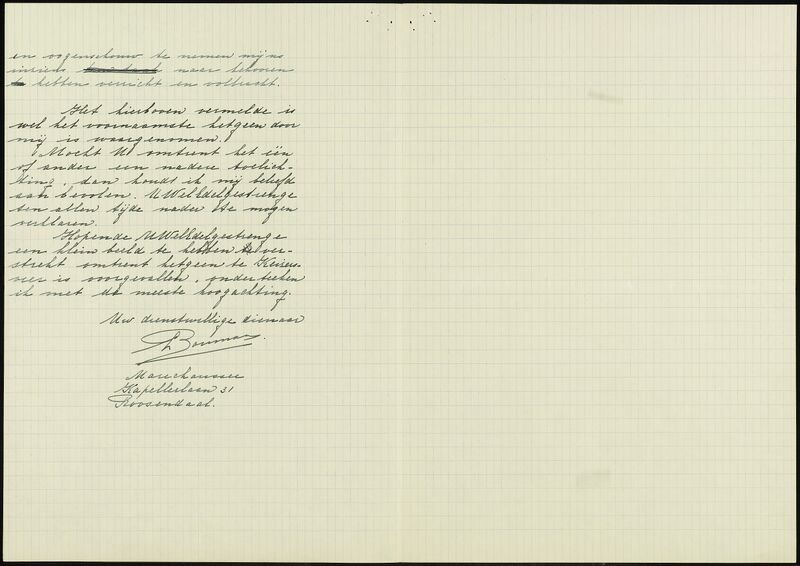 en oogenschouw te nemen mijns
inziens naar behooren
te hebben verricht en volbracht.
Het hierboven vermelde is
wel het voornaamste hetgeen door
mij is waargenomen.
Mocht U omtrent het één
of ander een nadere toelich-
ting, dan houdt ik mij beleefd
aanbevolen. UWelEdelgestrenge
ten allen tijde nader te mogen
verklaren.
Hopende UWelEdelgestrenge
een klein beeld te hebben ver-
strekt omtrent hetgeen te Keizers-
veer is voorgevallen, onderteeken
ik met de meeste hoogachting.
Uw dienstwillige dienaar
Bouman.
Marechaussee
Kapellerlaan 31
Roosendaal.